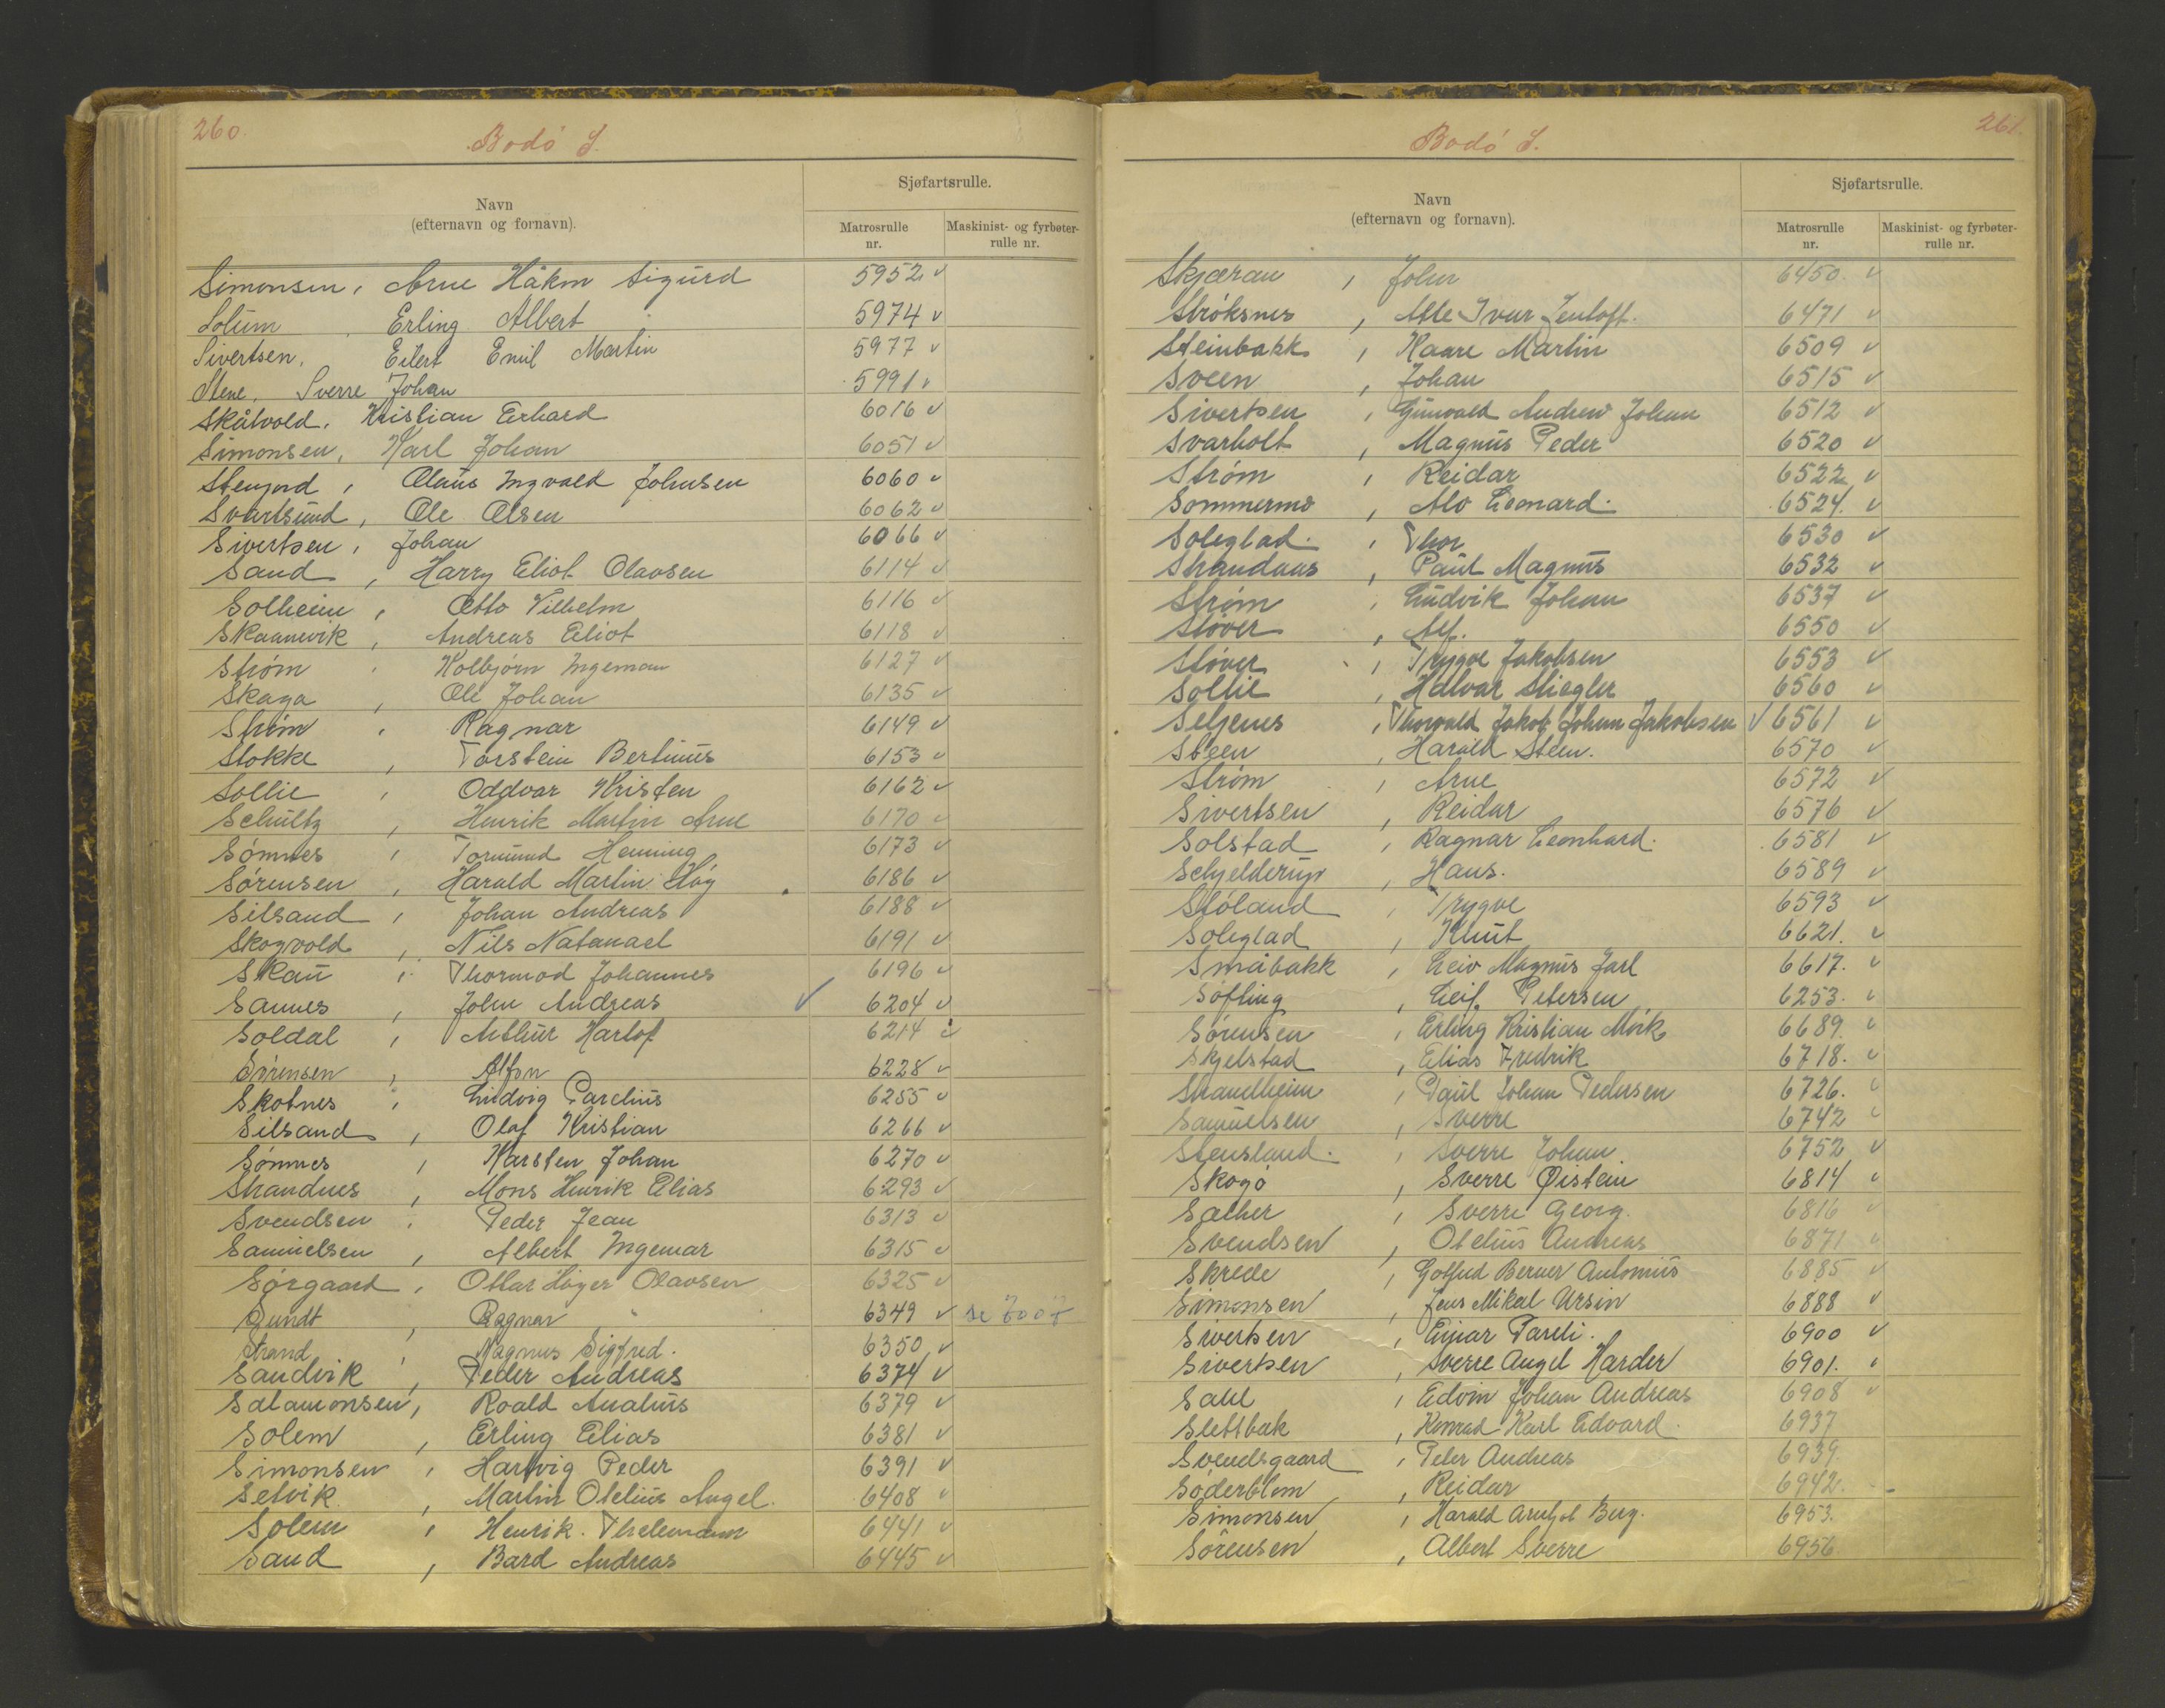 260.
Bodó S.
Navn
(efternavn og fornavn).
Sjøfartsrulle.
Matrosrulle
nr.
Maskinist- og fyrbøter-
rulle nr.
Simonsen, Arne Håkon Sigurd 5952 v
Solum, Erling Albert 5974 v
Sivertsen, Eilert Emil Martin 5977 v
Stene, Sverre Johan 5991 v
Skåtvold, Kristian Erhard 6016 v
Simonsen, Karl Johan 6051 v
Stenjord, Olaus Ingvald Johnsen 6060 v
Svartsund, Ole Olsen 6062 v
Sivertsen, Johan 6066 v
Sand, Harry Eliot Olavsen 6114 v
Solheim, Otto Vilhelm 6116 v
Skaanevik, Andreas Eliot 6118 v
Strøm, Kolbjørn Ingeman 6127 v
Skaga, Ole Johan 6135 v
Strøm, Ragnar 6149 v
Stokke, Torstein Bertinus 6153 v
Sollie, Oddvar Kristen 6162 v
Schultz, Henrik Martin Arne 6170 v
Sómnes, Tormund Henning 6173 v
Sórensen, Harald Martin Høg 6186 v
Silsand, Johan Andreas 6188 v
Skogvold, Nils Natanael 6191 v
Skau, Thormod Johannes 6196 v
Sannes, John Andreas ✓ 6204 v
Soldal, Arthur Harlof 6214 v
Sórensen, Alfon 6228 v
Skotnes, Ludvig Parelius 6255 v
Silsand, Olaf Kristian 6266 v
Sómnes, Karsten Johan 6270 v
Strandnes, Mons Henrik Elias 6293 v
Svendsen, Peder Jean 6313 v
Samuelsen, Albert Ingemar 6315 v
Sórgaard, Ottar Høyer Olavsen 6325 v
Sundt, Ragnar 6349 v se 7007
Strand, Magnus Sigfred. 6350 v
Sandvik, Peder Andreas 6374 v
Salamonsen, Roald Analius 6379 v
Solem, Erling Elias 6381 v
Simonsen, Hartvig Peder 6391 v
Selvik, Martin Otelius Angel. 6408 v
Solem, Henrik Thelemann 6441 v
Sand, Bard Andreas 6445 v
261.
Bodó S.
Navn
(efternavn og fornavn).
Sjøfartsrulle.
Matrosrulle
nr.
Maskinist- og fyrbøter-
rulle nr.
Skjæran, John 6450. v
Strøksnes, Atle Ivar Jentoft. 6471 v
Steinbakk, Kaare Martin 6509 v
Sveen, Johan 6515 v
Sivertsen, Gunvald Andrew Johan 6512 v
Svarholt, Magnus Peder 6520 v
Strøm, Reidar 6522 v
Sommermo, Alv Leonard. 6524. v
Soleglad, Thor 6530 v
Strandaas, Paul Magnus 6532 v
Strøm, Ludvik Johan 6537 v
Støver, Alf. 6550 v
Støver, Trygve Jakobsen 6553 v
Sollie, Halvar Stiegler 6560 v
Seljenes, Thorvald Jakob Johan Jakobsen v 6561 v
Steen, Harald Steen. 6570 v
Strøm, Arne 6572 v
Sivertsen, Reidar 6576 v
Solstad, Ragnar Leonhard. 6581 v
Schjelderup, Hans. 6589 v
Stóland, Trygve 6593 v
Soleglad, Knut 6621. v
Småbakk, Leiv Magnus Jarl 6617. v
Søfting, Leif Petersen 6253. v
Sórensen, Erling Kristian Mørk 6689. v
Skjelstad, Elias Fredrik 6718. v
Strandheim, Paul Johan Pedersen 6726. v
Samuelsen, Sverre 6742 v
Stensland, Sverre Johan 6752 v
Skogø, Sverre Øistein 6814 v
Sæther, Sverre Georg. 6816 v
Svendsen, Otelius Andreas 6871 v
Skrede, Gotfred Berner Antonius 6885 v
Simonsen, Jens Mikal Ursin 6888 v
Sivertsen, Einar Pareli. 6900 v
Sivertsen, Sverre Angel Harder 6901. v
Sahl, Edvin Johan Andreas 6908 v
Slettbak, Konrad Karl Edvard. 6937
Svendsgaard, Peter Andreas 6939.
Søderblom, Reidar 6942.
Simonsen, Harald Berg. 6953.
Sórensen, Albert Sverre 6956